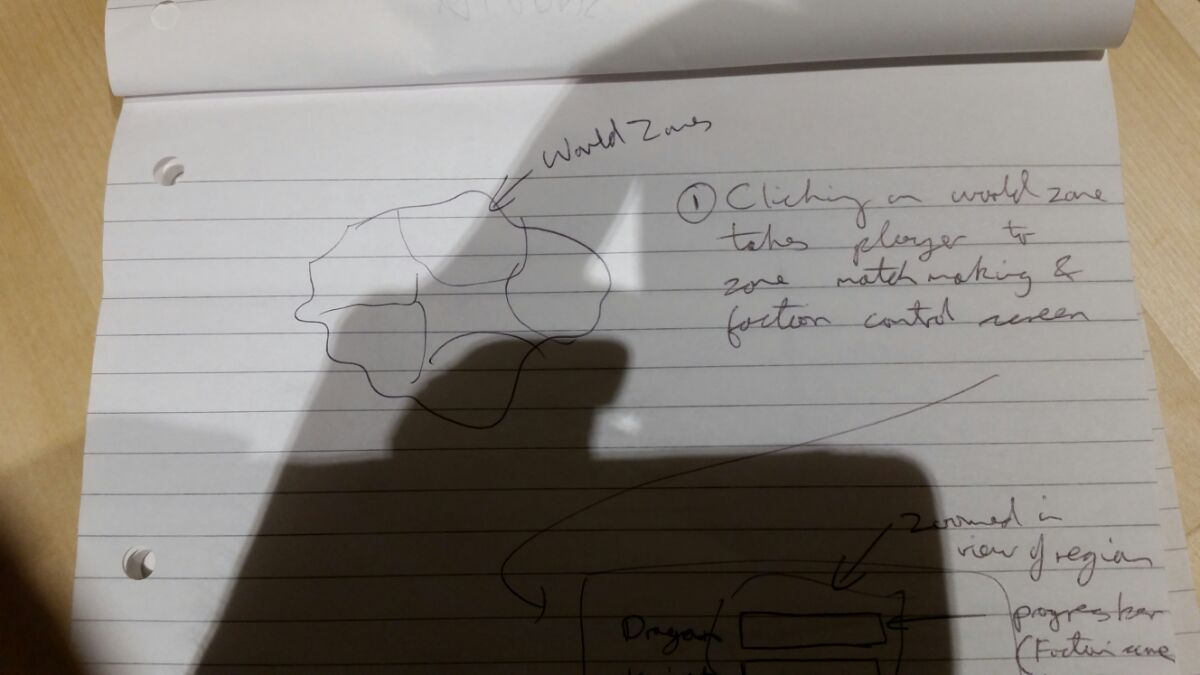 World Zones
① Clicking on world zone
takes player to
zone matchmaking &
faction control screen
Zoomed in
view of region
progress bar
(Faction
Dragon